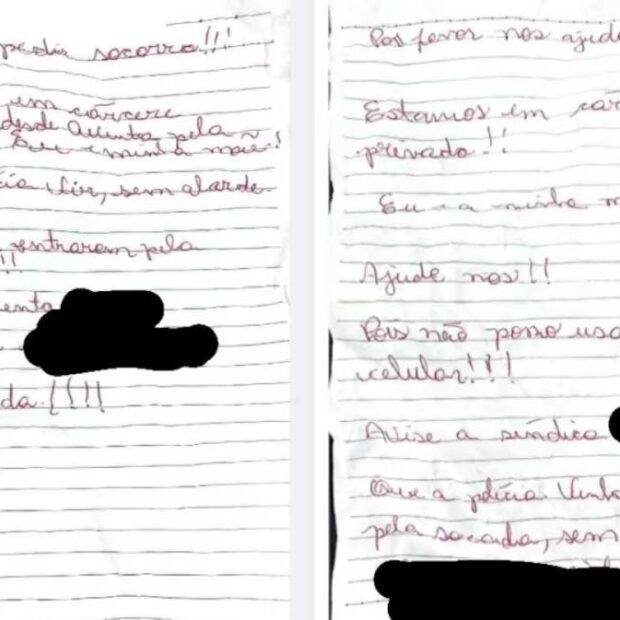 pedir socorro!!!
em cárcere
desde Quinta pela
Eu e minha mãe!
cia vir, sem alarde.
, entrarem pela
!!
enta
da!!!!
Por favor nos ajude
Estamos em cár
privado!!
Eu e a minha m
Ajude nos!!
Pois não posso usa
celular!!!
Avise a síndica
Que a polícia venha
pela sacada, sem